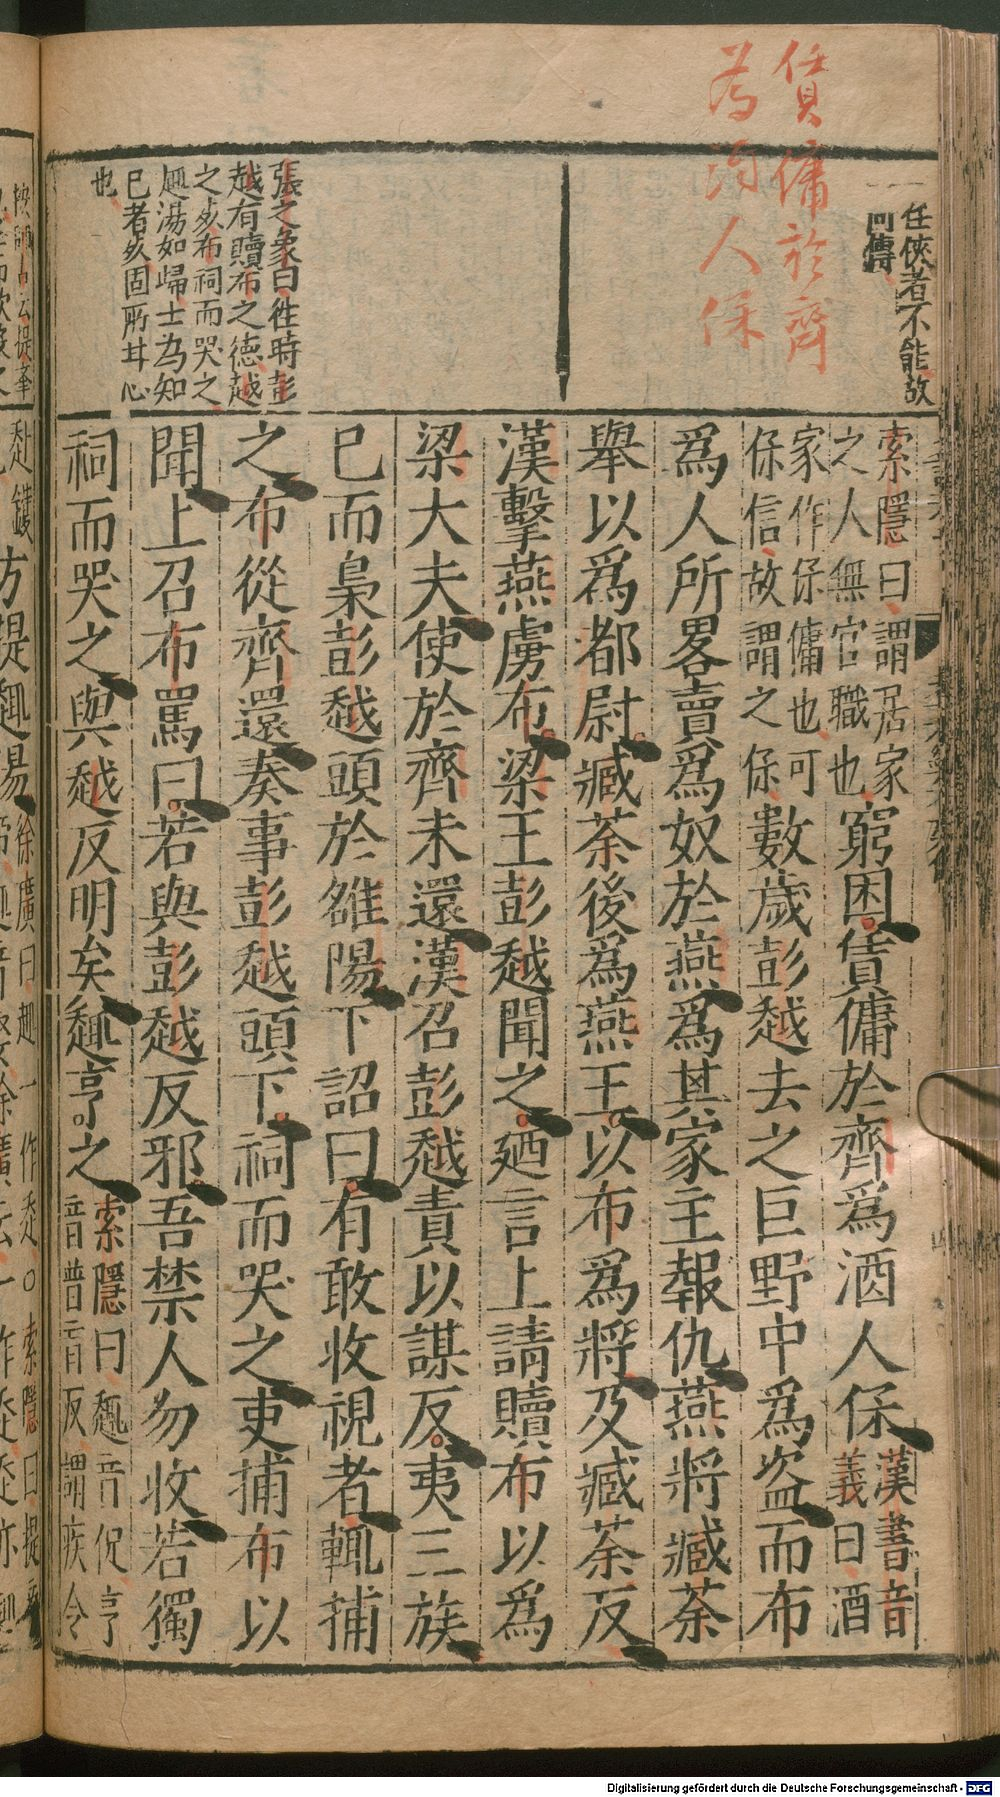 賃傭於齊
為酒人保
任俠者不能故
同傳
張之象曰徃時彭
越有贖布之德越
之死布祠而哭之
趣湯如歸士為知
己者死固所甘心
也
索隱曰謂居家
之人無官職也窮困賃傭於齊爲酒人保漢書音
義曰酒
家作保傭也可
保信故謂之保數歲彭越去之巨野中爲盗而布
爲人所畧賣爲奴於燕爲其家主報仇燕將臧荼
舉以爲都尉臧荼後爲燕王以布爲將及臧荼反
漢擊燕虜布梁王彭越聞之廼言上請贖布以爲
梁大夫使於齊未還漢召彭越責以謀反夷三族
已而梟彭越頭於雒陽下詔曰有敢收視者輒捕
之布從齊還奏事彭越頭下祠而哭之吏捕布以
聞上召布罵曰若與彭越反邪吾禁人勿收若獨
祠而哭之與越反明矣趣亨之索隱曰趣音促亨
音普盲反謂疾令
方提趣湯徐廣曰趣一作走○索隱曰提
Digitalisierung gefördert durch die Deutsche Forschungsgemeinschaft - DFG